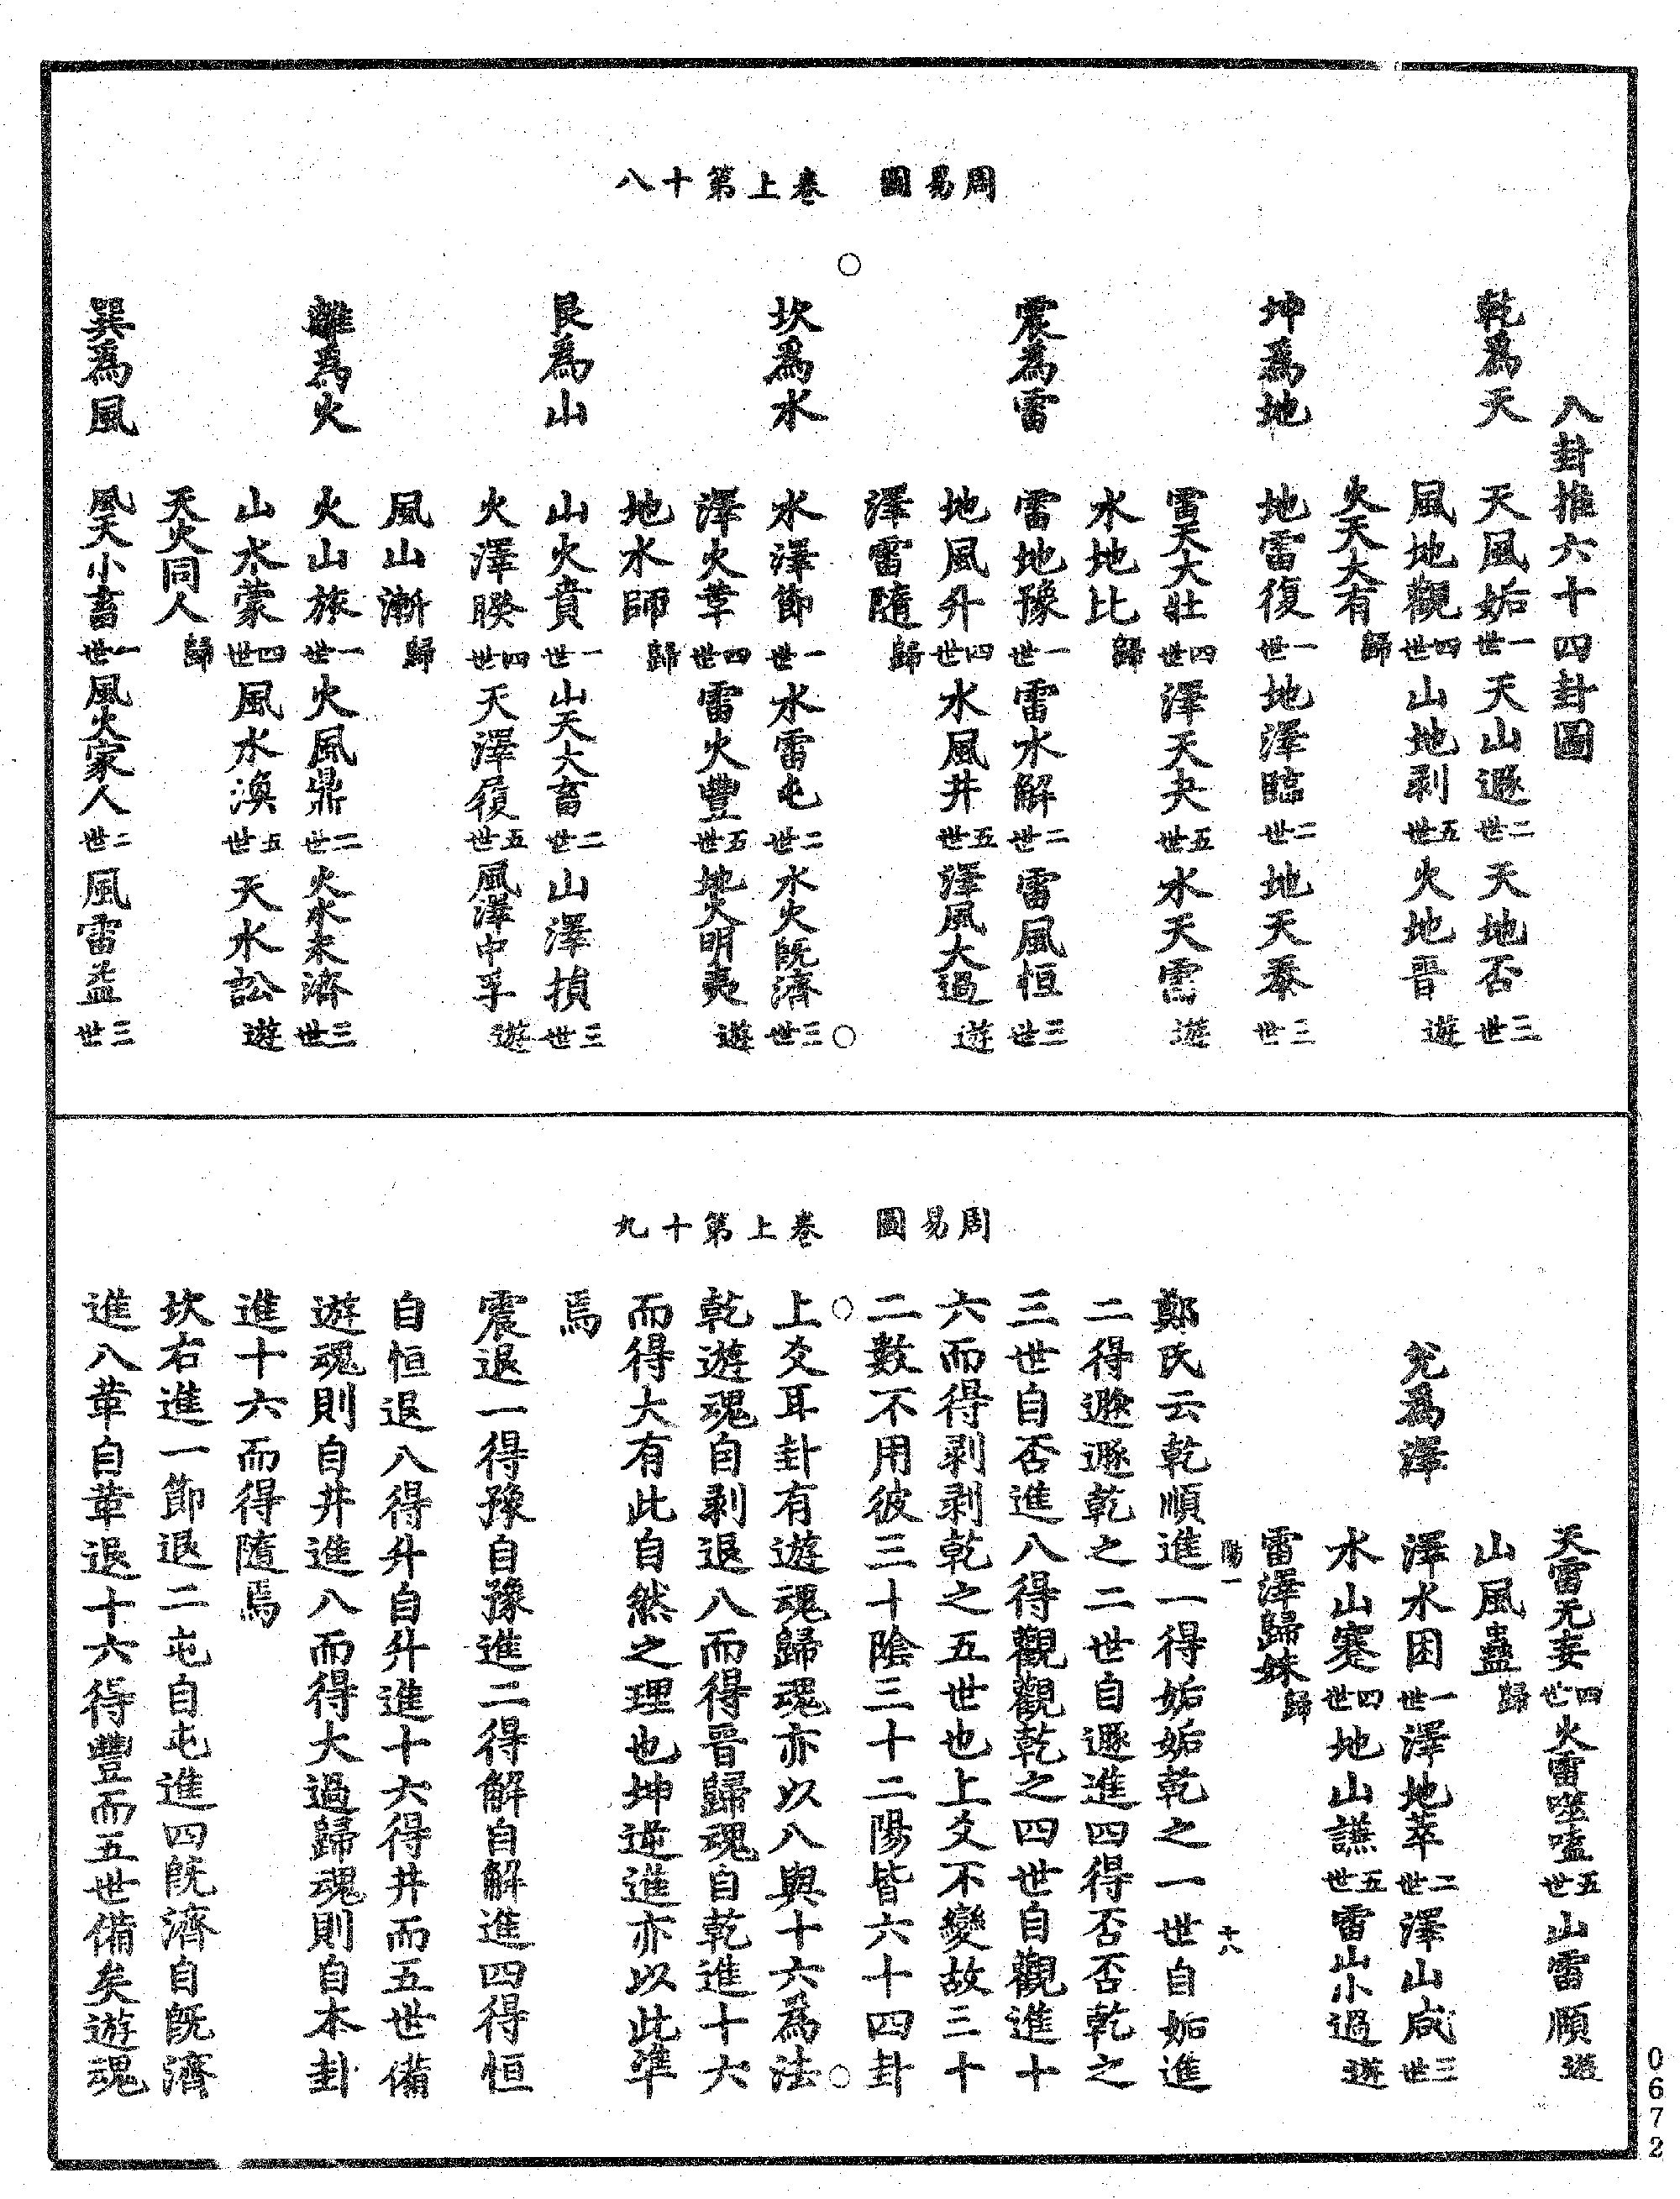 周易圖　卷上第十八
八卦推六十四卦圖
乾為天　天風姤一世　天山遯二世　天地否三世
風地觀四世　山地剥五世　火地晉遊
火天大有歸
坤為地　地雷復一世　地澤臨二世　地天泰三世
雷天大壯四世　澤天夬五世　水天需遊
水地比歸
震為雷　雷地豫一世　雷水解二世　雷風恒三世
地風升四世　水風井五世　澤風大過遊
澤雷隨歸
坎為水　水澤節一世　水雷屯二世　水火既濟三世
澤火革四世　雷火豐五世　地火明夷遊
地水師歸
艮為山　山火賁一世　山天大畜二世　山澤損三世
火澤睽四世　天澤履五世　風澤中孚遊
風山漸歸
離為火　火山旅一世　火風鼎二世　火水未濟三世
山水蒙四世　風水渙五世　天水訟遊
天火同人歸
巽為風　風天小畜一世　風火家人二世　風雷益三世
周易圖　卷上第十九
天雷无妄四世　火雷噬嗑五世　山雷頤遊
山風蠱歸
兌為澤　澤水困一世　澤地萃二世　澤山咸三世
水山蹇四世　地山謙五世　雷山小過遊
雷澤歸妹歸
陽一　十八
鄭氏云乾順進一得姤姤乾之一世自姤進
二得遯遯乾之二世自遯進四得否否乾之
三世自否進八得觀觀乾之四世自觀進十
六而得剥剥乾之五世也上爻不變故三十
二數不用彼三十陰三十二陽皆六十四卦
上爻耳卦有遊魂歸魂亦以八與十六為法
乾遊魂自剥退八而得晉歸魂自乾進十六
而得大有此自然之理也坤逆進亦以此準
焉
震退一得豫自豫進二得解自解進四得恒
自恒退八得升自升進十六得井而五世備
遊魂則自井進八而得大過歸魂則自本卦
進十六而得隨焉
坎右進一節退二屯自屯進四既濟自既濟
進八革自革退十六得豐而五世備矣遊魂
0672